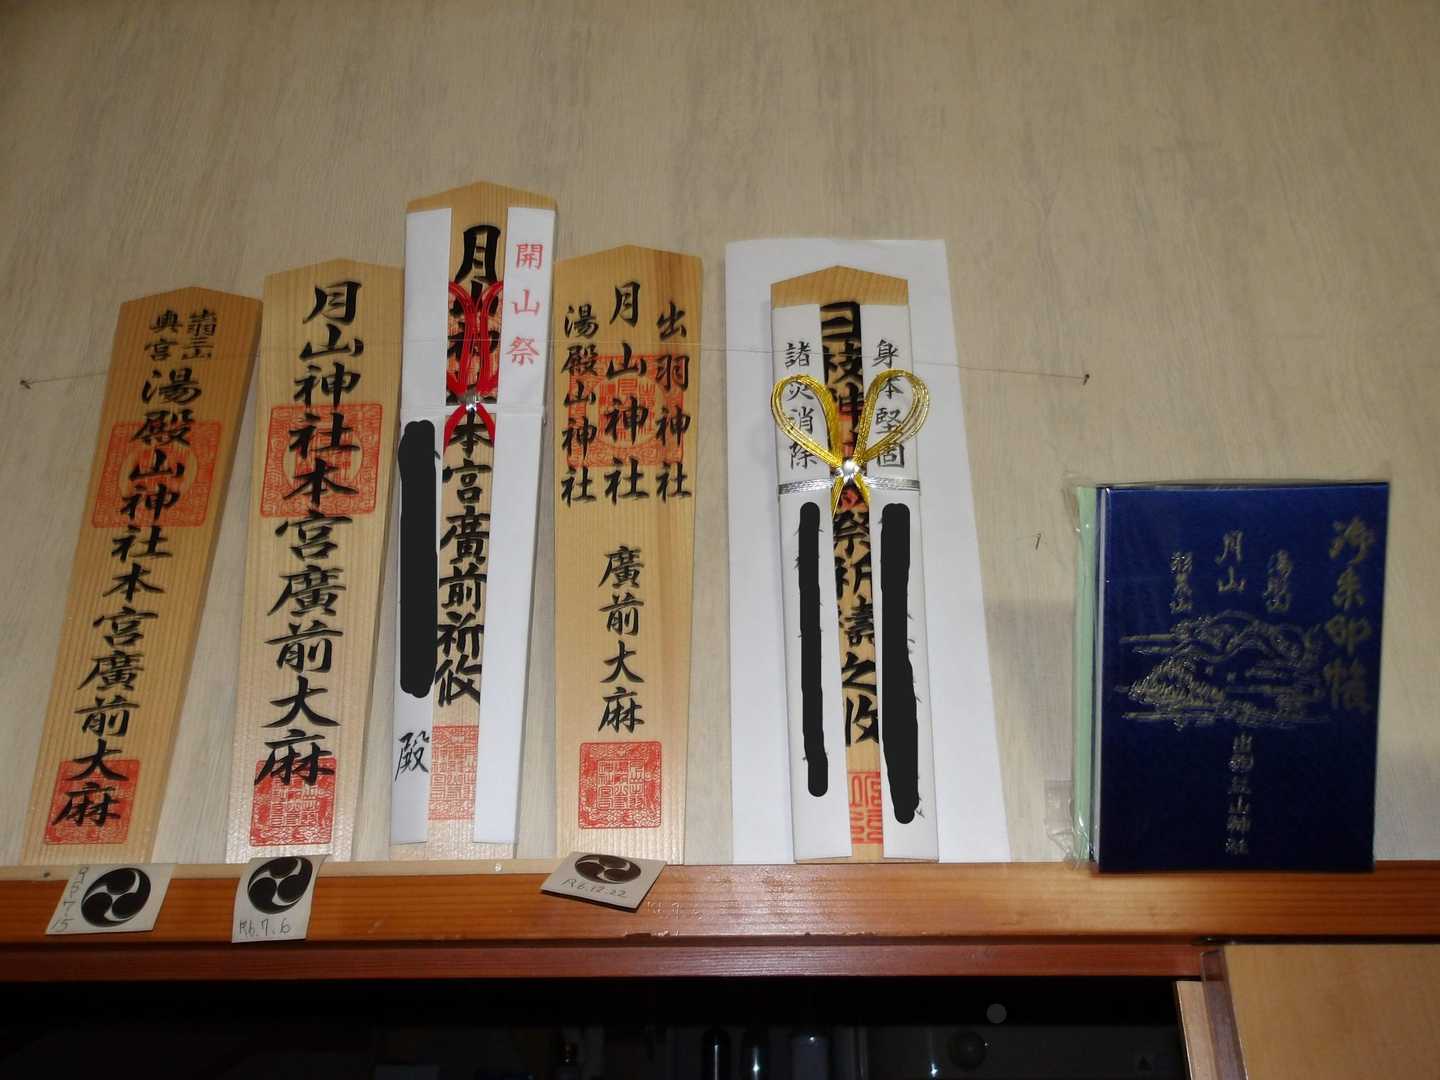 出羽三山
奥宮
湯殿山神社本宮廣前大麻
月山神社本宮廣前大麻
開山祭
月山神社本宮廣前祈攸
殿
出羽神社
月山神社
湯殿山神社
廣前大麻
身体堅固
日枝神
祭祈禱之攸
諸災消除
御朱印帳
湯殿山
月山
羽黒山
出羽三山神社
R5.7.15
R6.7.6
R6.12.22